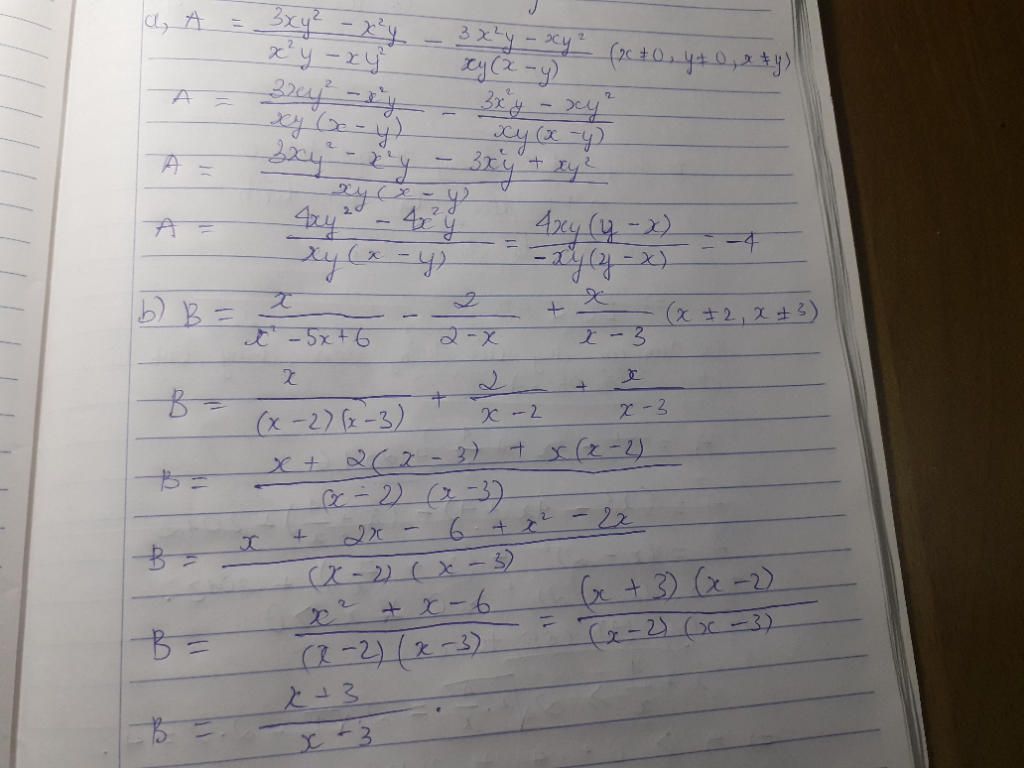 a, A = \frac{3xy² - x²y}{x²y - xy²} - \frac{3x²y - xy²}{xy(x - y)} (x ≠ 0, y ≠ 0, x ≠ y)
A = \frac{3xy² - x²y}{xy(x - y)} - \frac{3x²y - xy²}{xy(x - y)}
A = \frac{3xy² - x²y - 3x²y + xy²}{xy(x - y)}
A = \frac{4xy² - 4x²y}{xy(x - y)} = \frac{4xy(y - x)}{-xy(y - x)} = -4
b) B = \frac{x}{x² - 5x + 6} - \frac{2}{2 - x} + \frac{x}{x - 3} (x ≠ 2, x ≠ 3)
B = \frac{x}{(x - 2)(x - 3)} + \frac{2}{x - 2} + \frac{x}{x - 3}
B = \frac{x + 2(x - 3) + x(x - 2)}{(x - 2)(x - 3)}
B = \frac{x + 2x - 6 + x² - 2x}{(x - 2)(x - 3)}
B = \frac{x² + x - 6}{(x - 2)(x - 3)} = \frac{(x + 3)(x - 2)}{(x - 2)(x - 3)}
B = \frac{x + 3}{x - 3}.